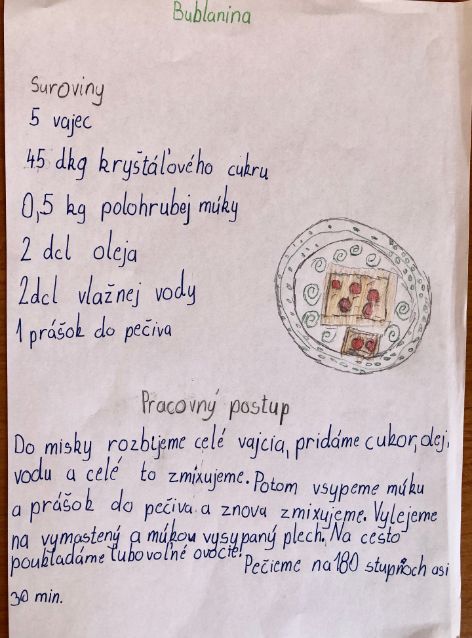 Bublanina
Suroviny
5 vajec
45 dkg kryštáľového cukru
0,5 kg polohrubej múky
2 dcl oleja
2dcl vlažnej vody
1 prášok do pečiva
Pracovný postup
Do misky rozbijeme celé vajcia, pridáme cukor, olej,
vodu a celé to zmixujeme. Potom vsypeme múku
a prášok do pečiva a znova zmixujeme. Vylejeme
na vymastený a múkou vysypaný plech. Na cesto
poukladáme ľubovoľné ovocie.
Pečieme na 180 stupňoch asi
30 min.